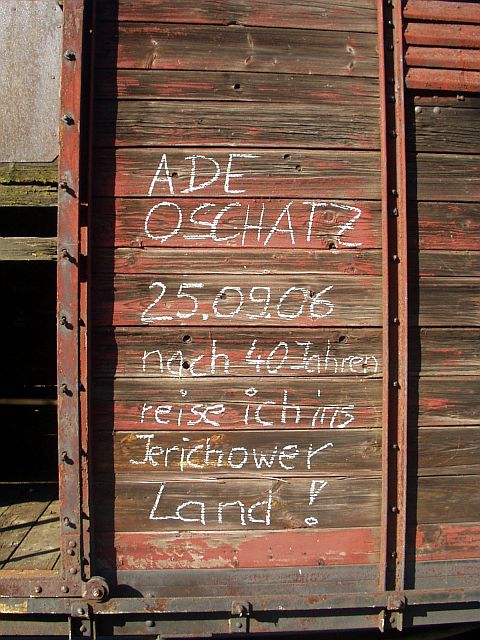 ADE
OSCHATZ
25.09.06
nach 40 Jahren
reise ich ins
Jerichower
Land !